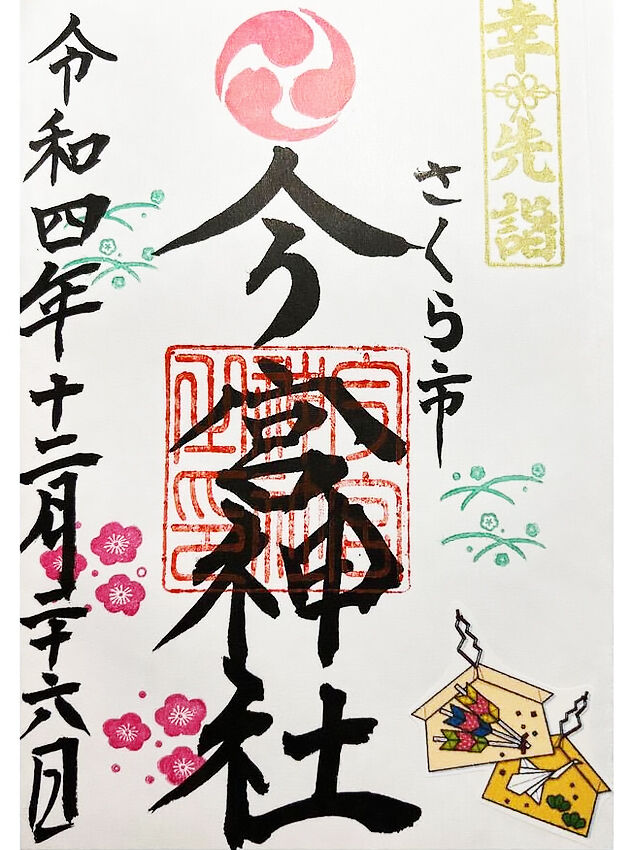 幸先詣
さくら市
今宮神社
令和四年十二月二十六日